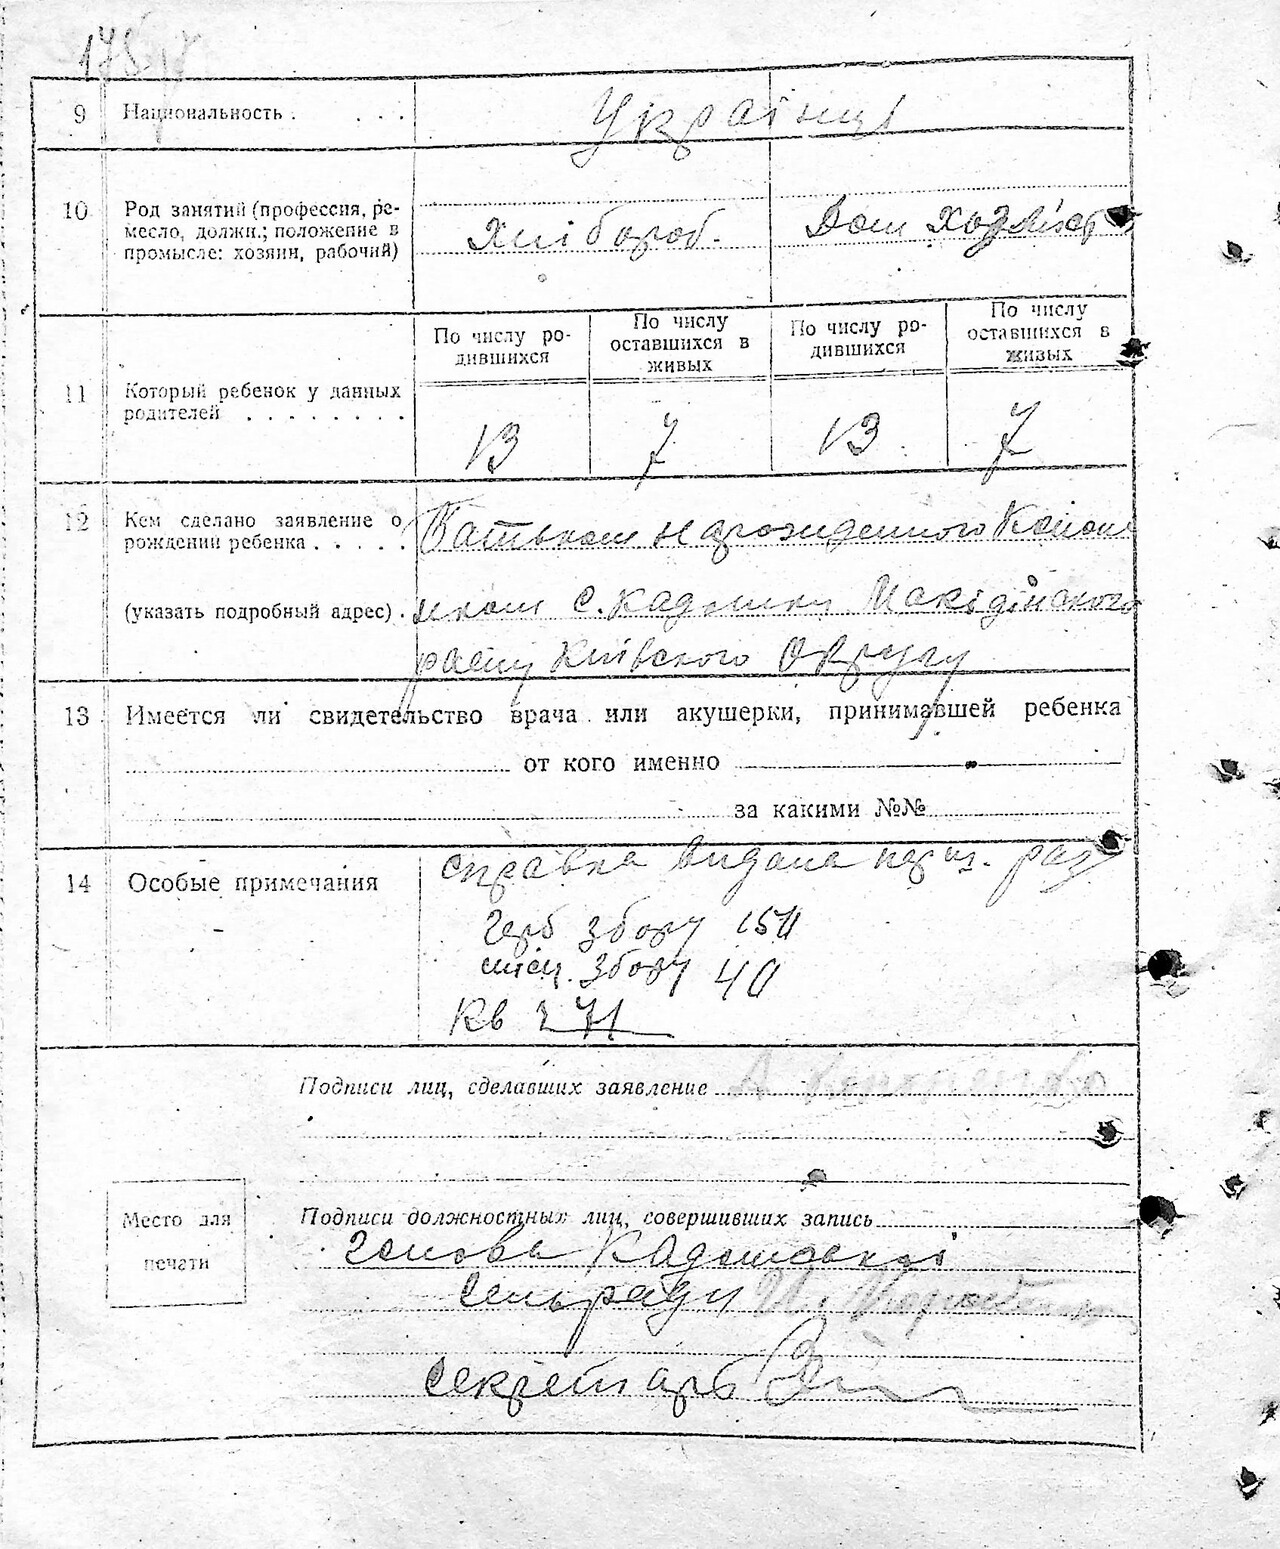 9 Национальность . . . . Українці
10 Род занятий (профессия, ре-
месло, должн.; положение в
промысле: хозяин, рабочий)
Хлібороб. Дом Хозяйст
По числу ро-
дившихся
По числу
оставшихся в
живых
По числу ро-
дившихся
По числу
оставшихся в
живых
11 Который ребенок у данных
родителей . . . . . . . .
13 7 13 7
12 Кем сделано заявление о
рождении ребенка . . . . .
(указать подробный адрес) .
Батьком нарожденного
с. Кадомки Макарівского
Київского Округу
13 Имеется ли свидетельство врача или акушерки, принимавшей ребенка
от кого именно
за какими №№
14 Особые примечания
справка видана раз
герб збору 15
збору 40
Кв 271
Подписи лиц, сделавших заявление
Место для
печати
Подписи должностных лиц, совершивших запись
Голова
сельради
секретарь